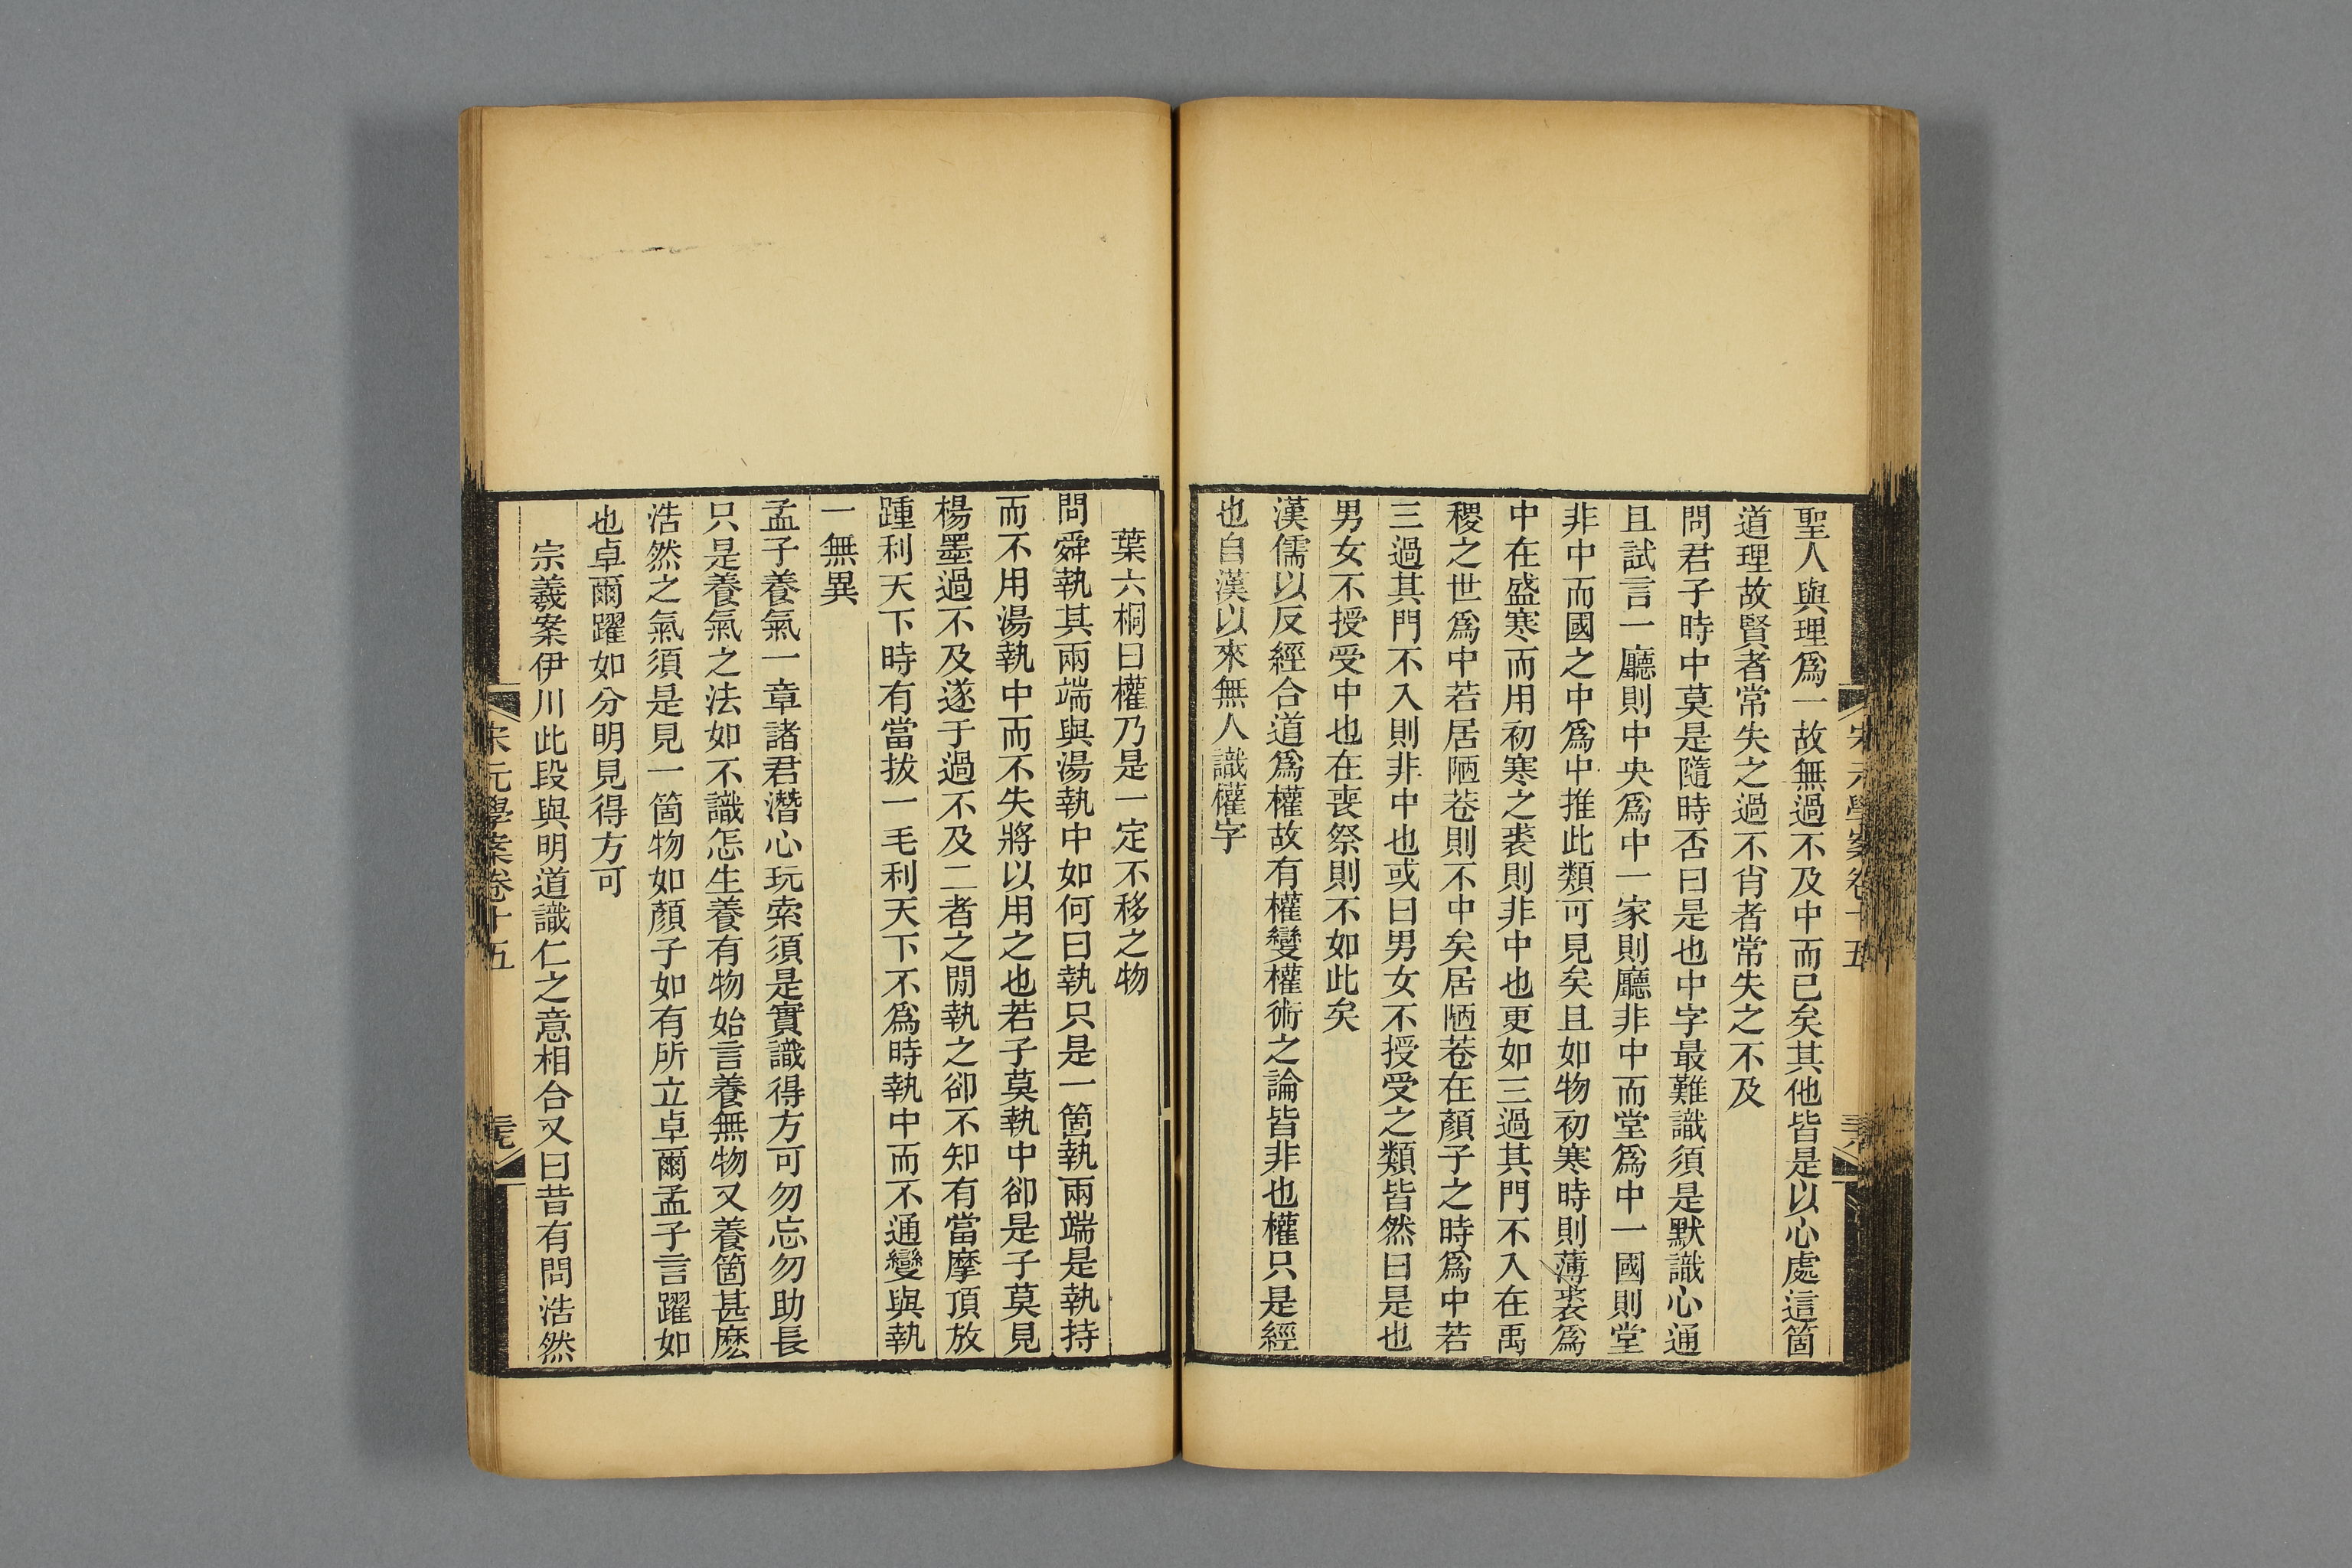 宋元學案卷十五
聖人與理爲一故無過不及中而已矣其他皆是以心處這箇
道理故賢者常失之過不肖者常失之不及
問君子時中莫是隨時否曰是也中字最難識須是默識心通
且試言一廳則中央爲中一家則廳非中而堂爲中一國則堂
非中而國之中爲中推此類可見矣且如物初寒時則薄裘爲
中在盛寒而用初寒之裘則非中也更如三過其門不入在禹
稷之世爲中若居陋巷則不中矣居陋巷在顏子之時爲中若
三過其門不入則非中也或曰男女不授受之類皆然曰是也
男女不授受中也在喪祭則不如此矣
漢儒以反經合道爲權故有權變權術之論皆非也權只是經
也自漢以來無人識權字
葉六桐曰權乃是一定不移之物
問舜執其兩端與湯執中如何曰執只是一箇執兩端是執持
而不用湯執中而不失將以用之也若子莫執中卻是子莫見
楊墨過不及遂于過不及二者之閒執之卻不知有當摩頂放
踵利天下時有當拔一毛利天下不爲時執中而不通變與執
一無異
孟子養氣一章諸君潛心玩索須是實識得方可勿忘勿助長
只是養氣之法如不識怎生養有物始言養無物又養箇甚麽
浩然之氣須是見一箇物如顏子如有所立卓爾孟子言躍如
也卓爾躍如分明見得方可
宗羲案伊川此段與明道識仁之意相合又曰昔有問浩然
宋元學案卷十五